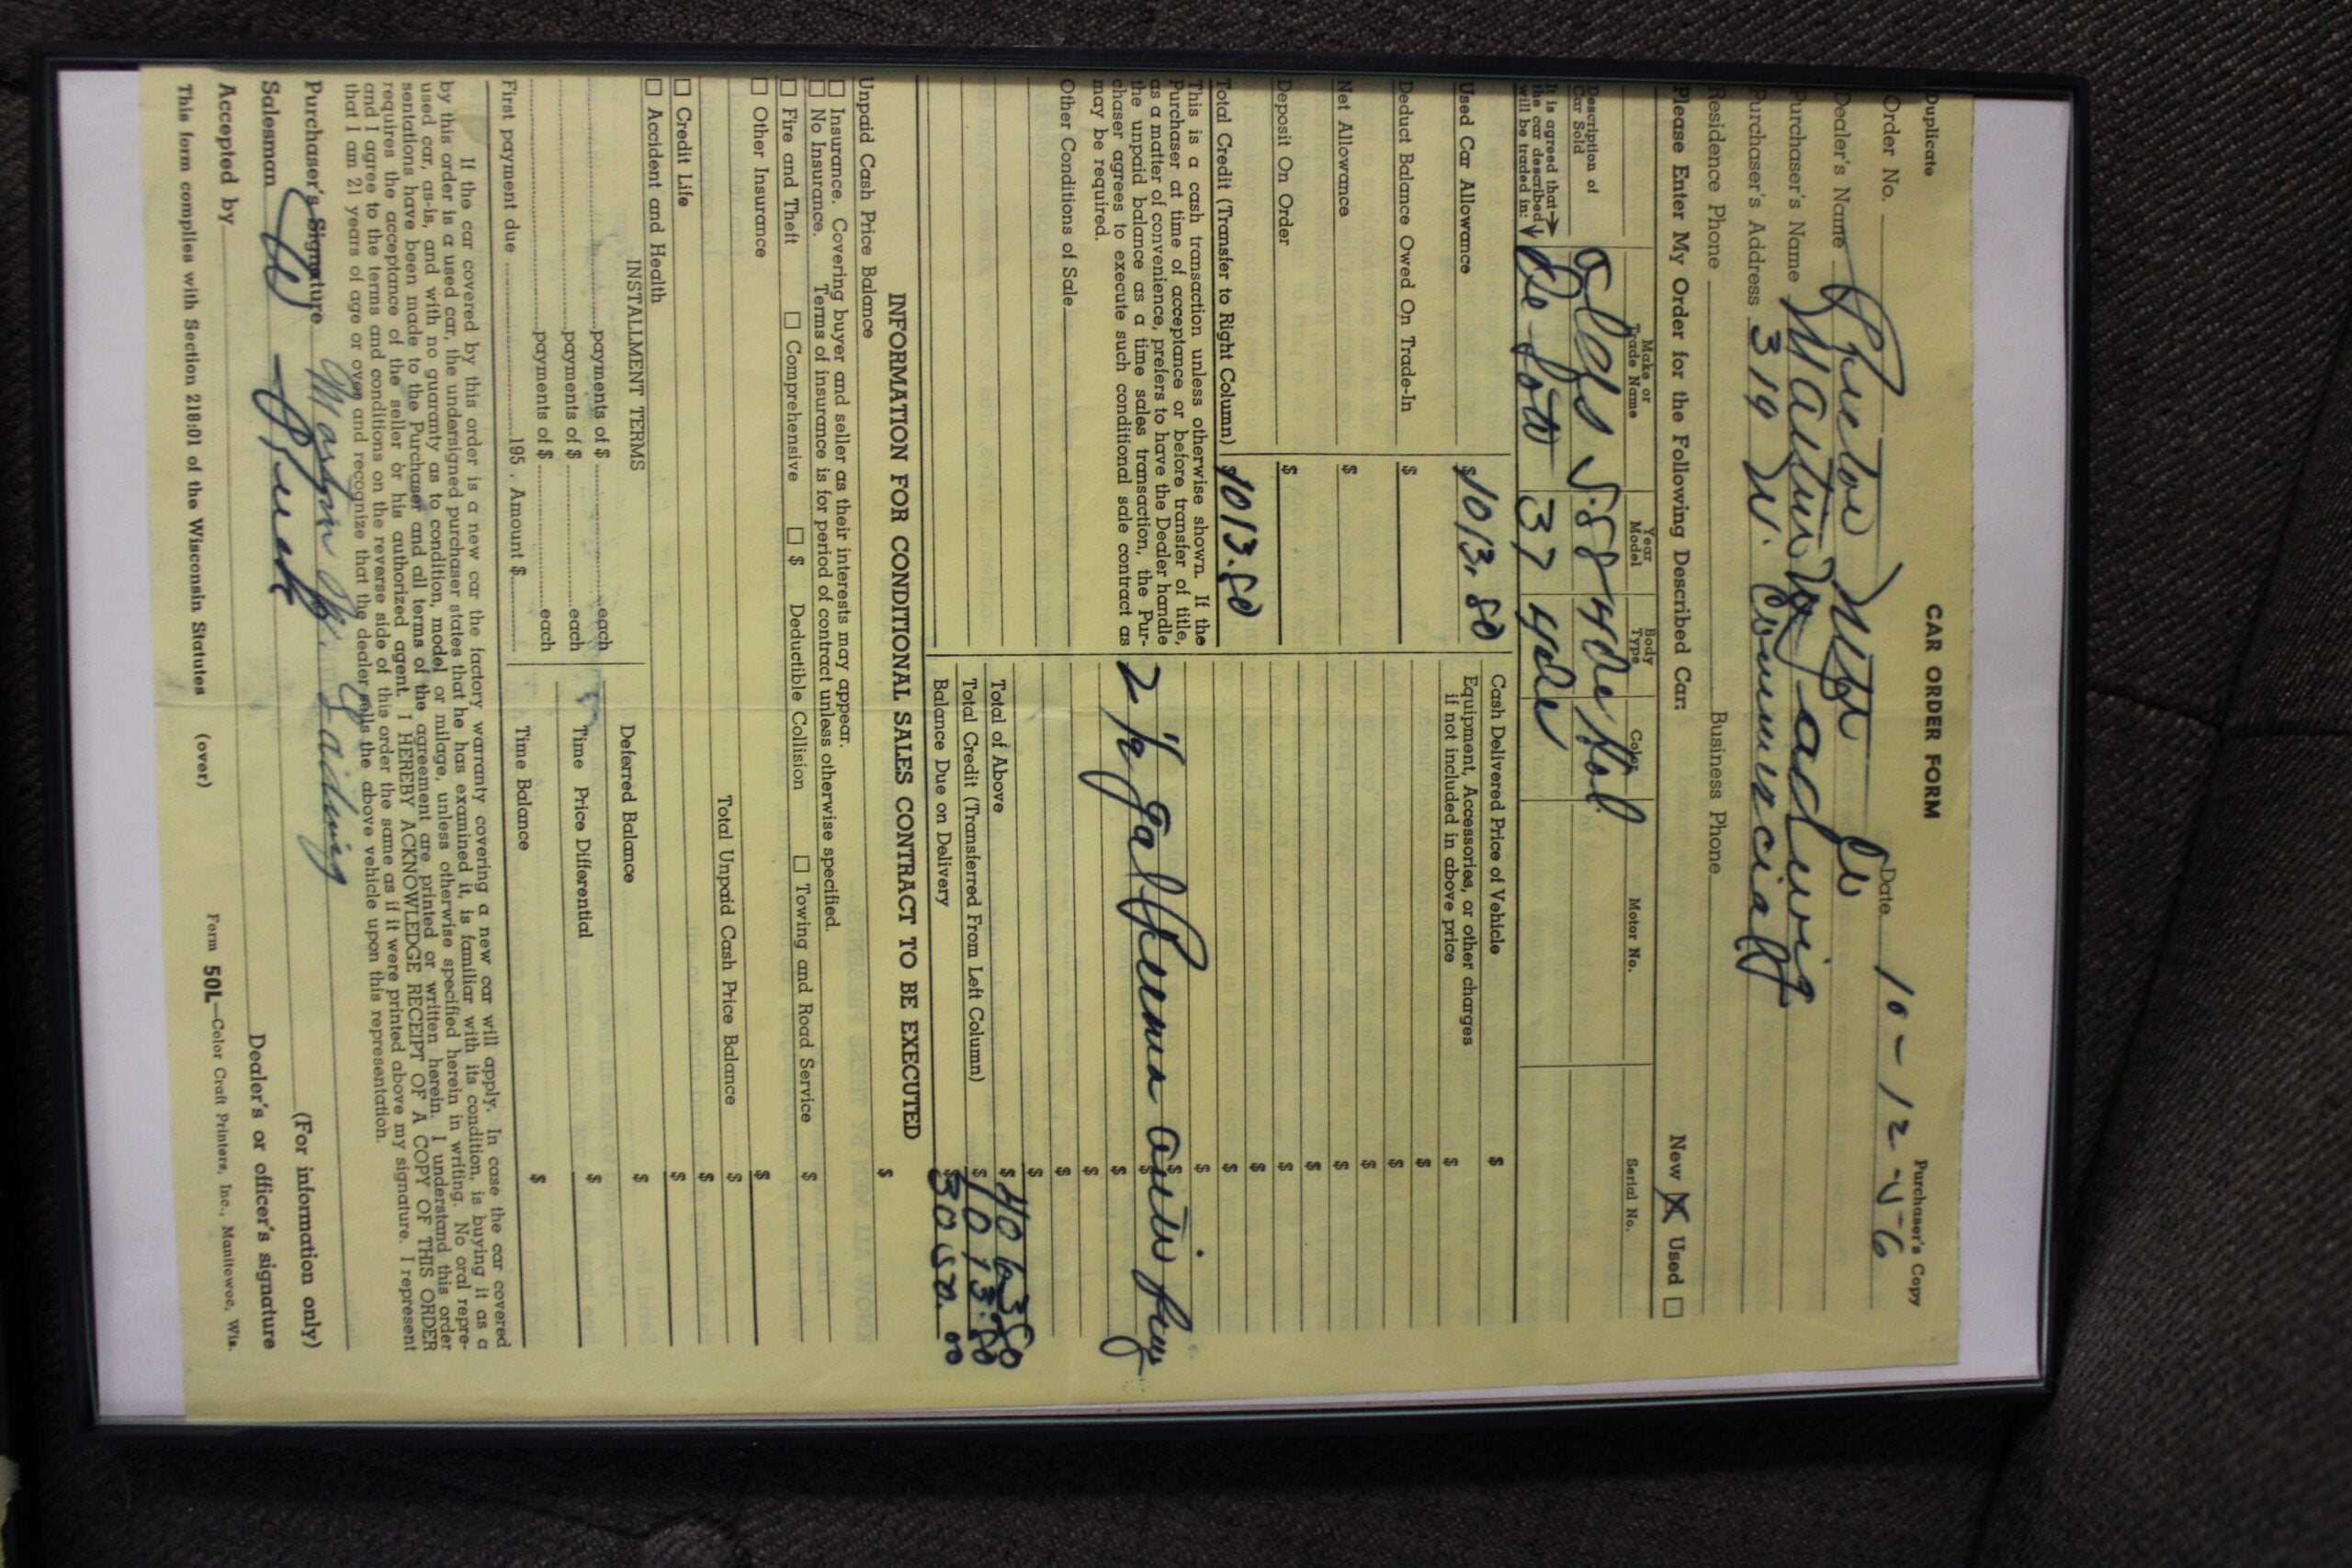 Duplicate
CAR ORDER FORM
Purchaser's Copy
Order No.
Date 10-12-56
Dealer's Name
Purchaser's Name Martin
Purchaser's Address 319 W. Commercial
Residence Phone
Business Phone
Please Enter My Order for the Following Described Car:
New X Used
Make or Trade Name
Year Model
Body Type
Color
Motor No.
Serial No.
Description of Car Sold
Olds S-88 4 dr Hol
It is agreed that the car described will be traded in:
De Soto 37 4 dr
Used Car Allowance $1013.80
Deduct Balance Owed On Trade-In $
Net Allowance $
Deposit On Order $
Total Credit (Transfer to Right Column) $1013.80
This is a cash transaction unless otherwise shown. If the
Purchaser at time of acceptance or before transfer of title,
as a matter of convenience, prefers to have the Dealer handle
the unpaid balance as a time sales transaction, the Pur-
chaser agrees to execute such conditional sale contract as
may be required.
Other Conditions of Sale
Cash Delivered Price of Vehicle $
Equipment, Accessories, or other charges
if not included in above price $
$
$
$
$
$
$
$
$
$
2 gal Perma
$
$
$
$
$
Total of Above $4063.80
Total Credit (Transferred From Left Column) $1013.80
Balance Due on Delivery $3050.00
INFORMATION FOR CONDITIONAL SALES CONTRACT TO BE EXECUTED
Unpaid Cash Price Balance $
Insurance. Covering buyer and seller as their interests may appear.
No Insurance. Terms of insurance is for period of contract unless otherwise specified.
Fire and Theft Comprehensive $ Deductible Collision Towing and Road Service $
Other Insurance $
Total Unpaid Cash Price Balance $
$
Credit Life $
Accident and Health $
INSTALLMENT TERMS
Deferred Balance
payments of $ each
Time Price Differential $
payments of $ each
payments of $ each
Time Balance $
First payment due 195 . Amount $
If the car covered by this order is a new car the factory warranty covering a new car will apply. In case the car covered
by this order is a used car, the undersigned purchaser states that he has examined it, is familiar with its condition, is buying it as a
used car, as-is, and with no guaranty as to condition, model or milage, unless otherwise specified herein in writing. No oral repre-
sentations have been made to the Purchaser and all terms of the agreement are printed or written herein. I understand this order
requires the acceptance of the seller or his authorized agent. I HEREBY ACKNOWLEDGE RECEIPT OF A COPY OF THIS ORDER
and I agree to the terms and conditions on the reverse side of this order the same as if it were printed above my signature. I represent
that I am 21 years of age or over and recognize that the dealer sells the above vehicle upon this representation.
Purchaser's Signature
(For information only)
Salesman
Accepted by
Dealer's or officer's signature
This form complies with Section 218:01 of the Wisconsin Statutes (over)
Form 50L—Color Craft Printers, Inc., Manitowoc, Wis.